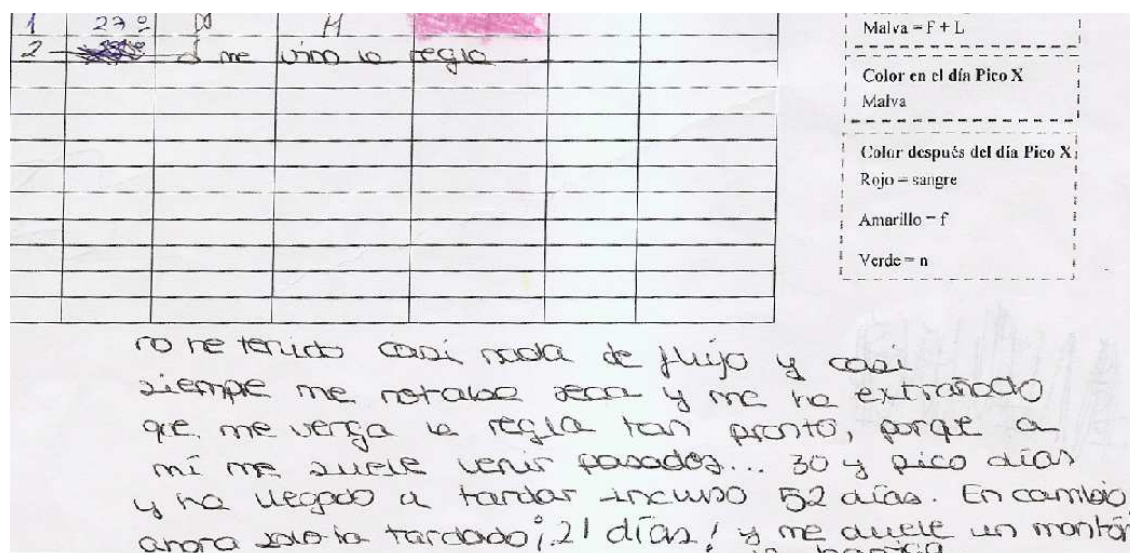 Malva = F + L
1 27º H
2 me vino la regla
Color en el día Pico X
Malva
Color después del día Pico X
Rojo = sangre
Amarillo = f
Verde = n
no he tenido casi nada de flujo y casi
siempre me notaba seca y me ha extrañado
que me venga la regla tan pronto, porque a
mí me suele venir pasados... 30 y pico días
y ha llegado a tardar incluso 52 días. En cambio
ahora solo ha tardado ¡21 días! y me duele un montón
la barriga